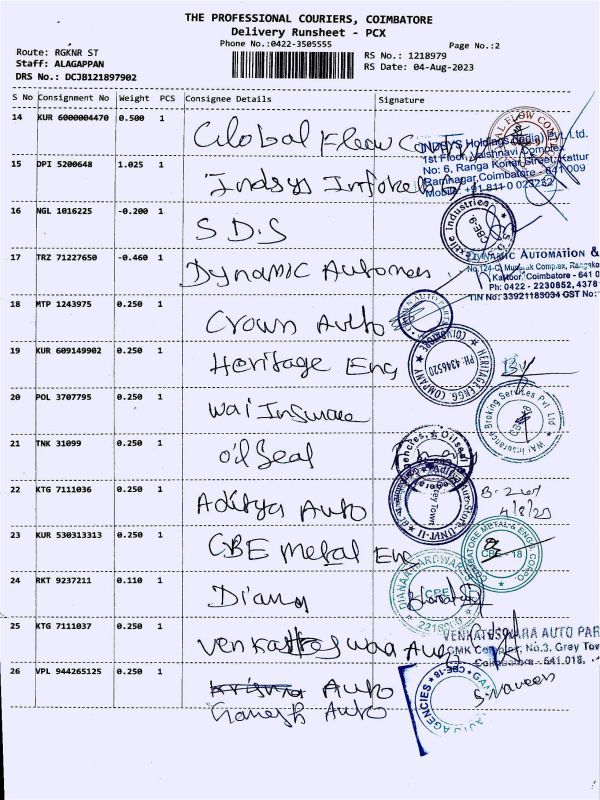 THE PROFESSIONAL COURIERS, COIMBATORE
Delivery Runsheet - PCX
Phone No.:0422-3505555
Page No.:2
Route: RGKNR ST
RS No.: 1218979
Staff: ALAGAPPAN
RS Date: 04-Aug-2023
DRS No.: DCJB121897902
S No Consignment No Weight PCS Consignee Details Signature
14 KUR 6000004470 0.500 1
Global Flow
INDSYS Holdings (India) Pvt. Ltd.
1st Floor, Vaishnavi Complex
No: 6, Ranga Konar Street, Kattur
Ramnagar, Coimbatore - 641 009
15 DPI 5200648 1.025 1
Indsys
16 NGL 1016225 -0.200 1
S.D.S
17 TRZ 71227650 -0.460 1
Dynamic
DYNAMIC AUTOMATION &
Kattoor, Coimbatore - 641 0
Ph: 0422 - 2230852, 4378
TIN No: 33921183034 GST No:
18 MTP 1243975 0.250 1
Crown Auto
CROWN AUTO PARTS
19 KUR 609149902 0.250 1
Heritage Eng
HERITAGE ENGG. COMPANY
PH: 4346520
COIMBATORE
20 POL 3707795 0.250 1
Wai
WAI Insurance Broking Services Pvt. Ltd
21 TNK 31099 0.250 1
Oil Seal
22 KTG 7111036 0.250 1
Aditya Auto
4/8/23
23 KUR 530313313 0.250 1
CBE Metal Eng
COIMBATORE METAL & ENGG. CORPO.
CBE - 18
24 RKT 9237211 0.110 1
Diana
DIANA HARDWARE
CBE
25 KTG 7111037 0.250 1
Auto
VENKATESWARA AUTO PAR
GMK Complex, No.3, Grey Tow
Coimbatore - 641 018.
26 VPL 944265125 0.250 1
Krishna Auto
Ganesh Auto
AUTO AGENCIES
CBE-18
S. Naveen